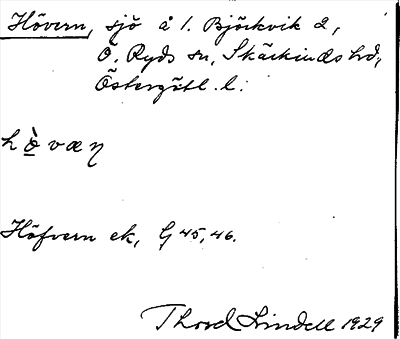 Hövern, sjö å 1. Björkvik 2,
Ö. Ryds sn, Skärkinds hd,
Östergötl. l.
Höfvern ek, G 45, 46.
Thord Lindell 1929